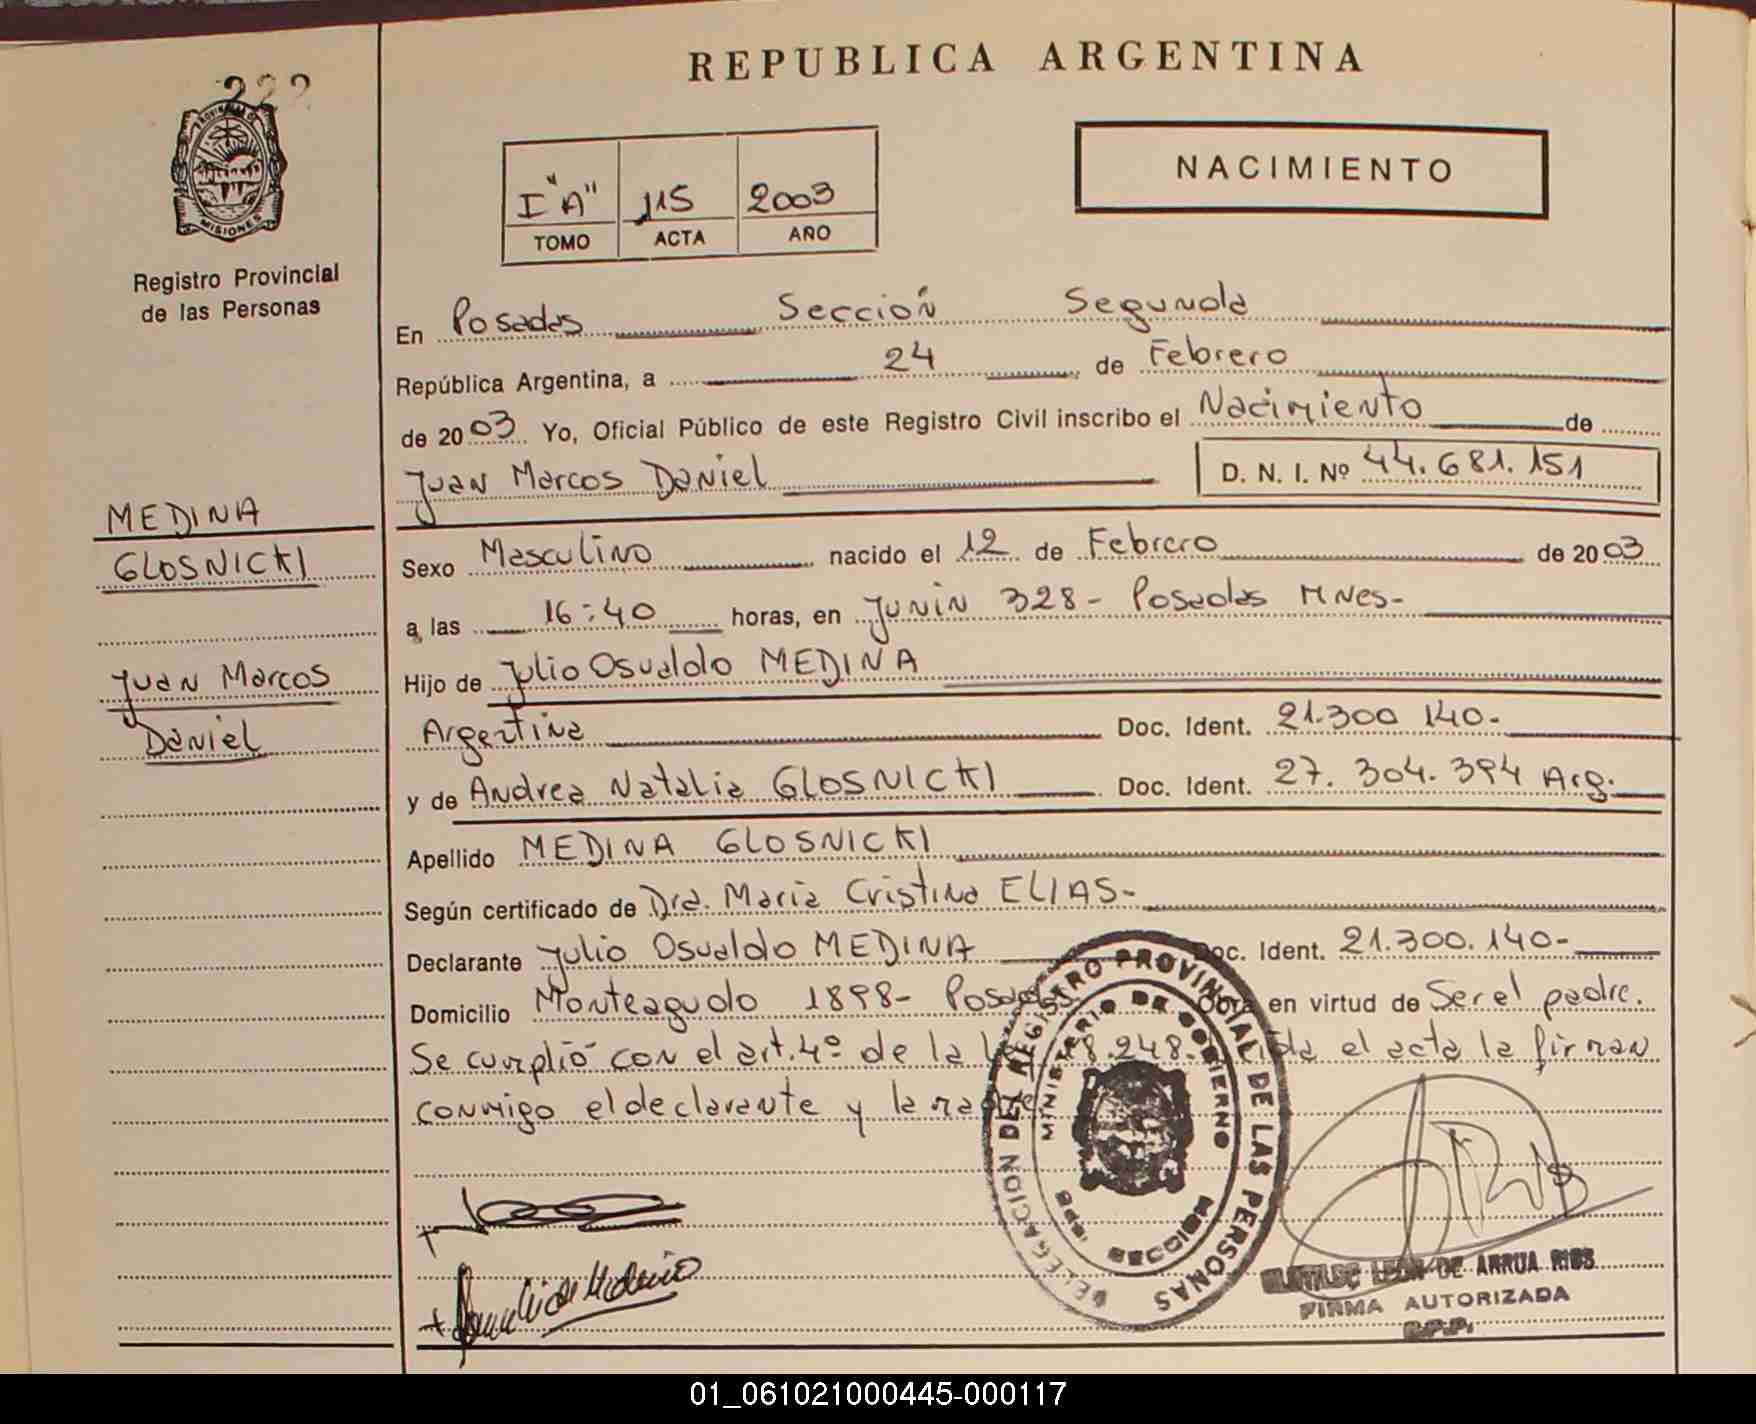 222
PROVINCIA DE
MISIONES
Registro Provincial
de las Personas
MEDINA
GLOSNICKI
Juan Marcos
Daniel
REPUBLICA ARGENTINA
I "A" 115 2003
TOMO ACTA AÑO
NACIMIENTO
En Posadas Sección Segunda
República Argentina, a 24 de Febrero
de 2003 Yo, Oficial Público de este Registro Civil inscribo el Nacimiento de
Juan Marcos Daniel D. N. I. Nº 44.681.151
Sexo Masculino nacido el 12 de Febrero de 2003
a las 16:40 horas, en Junin 328- Posadas Mnes-
Hijo de Julio Osvaldo MEDINA
Argentina Doc. Ident. 21.300 140-
y de Andrea Natalia GLOSNICKI Doc. Ident. 27.304.394 Arg.
Apellido MEDINA GLOSNICKI
Según certificado de Dra. Maria Cristina ELIAS-
Declarante Julio Osvaldo MEDINA Doc. Ident. 21.300.140-
Domicilio Monteagudo 1898- Posadas en virtud de Ser el padre.
Se cumplió con el art. 4º de la 18.248. el acta la firman
conmigo el declarante y la madre
DELEGACION DEL REGISTRO PROVINCIAL DE LAS PERSONAS
MINISTERIO DE GOBIERNO
LEON DE ARRUA RIOS
FIRMA AUTORIZADA
R.P.P.
01_061021000445-000117